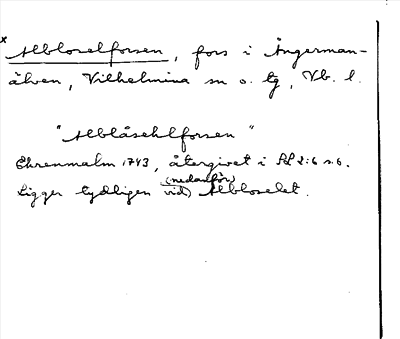 x Albloselforsen, fors i Ångerman-
älven, Vilhelmina sn o. tg, Vb. l.
"Alblåsehlforsen"
Ehrenmalm 1743, återgivet i SL 2:6 s. 6.
(nedanför)
Ligger tydligen vid) Albloselet.